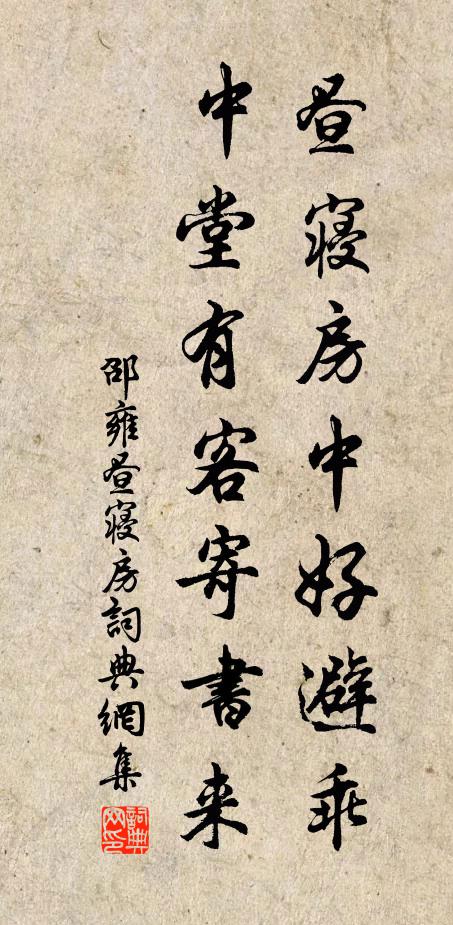 昼寝房中好避乖
中堂有客寄書来
邵雍昼寝房詞典網集
詞典
网印